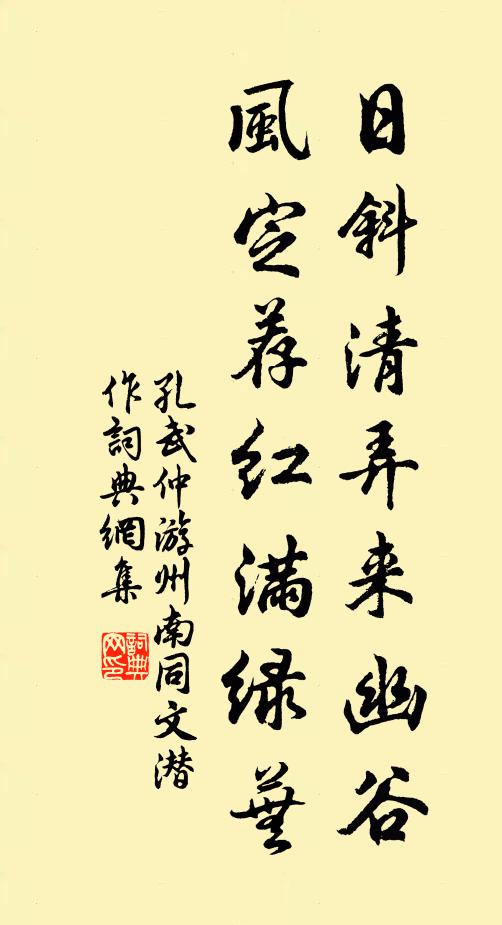 日斜清弄来幽谷
風定荐红满绿蕪
孔武仲游州南同文潜
作詞典網集
詞典网印